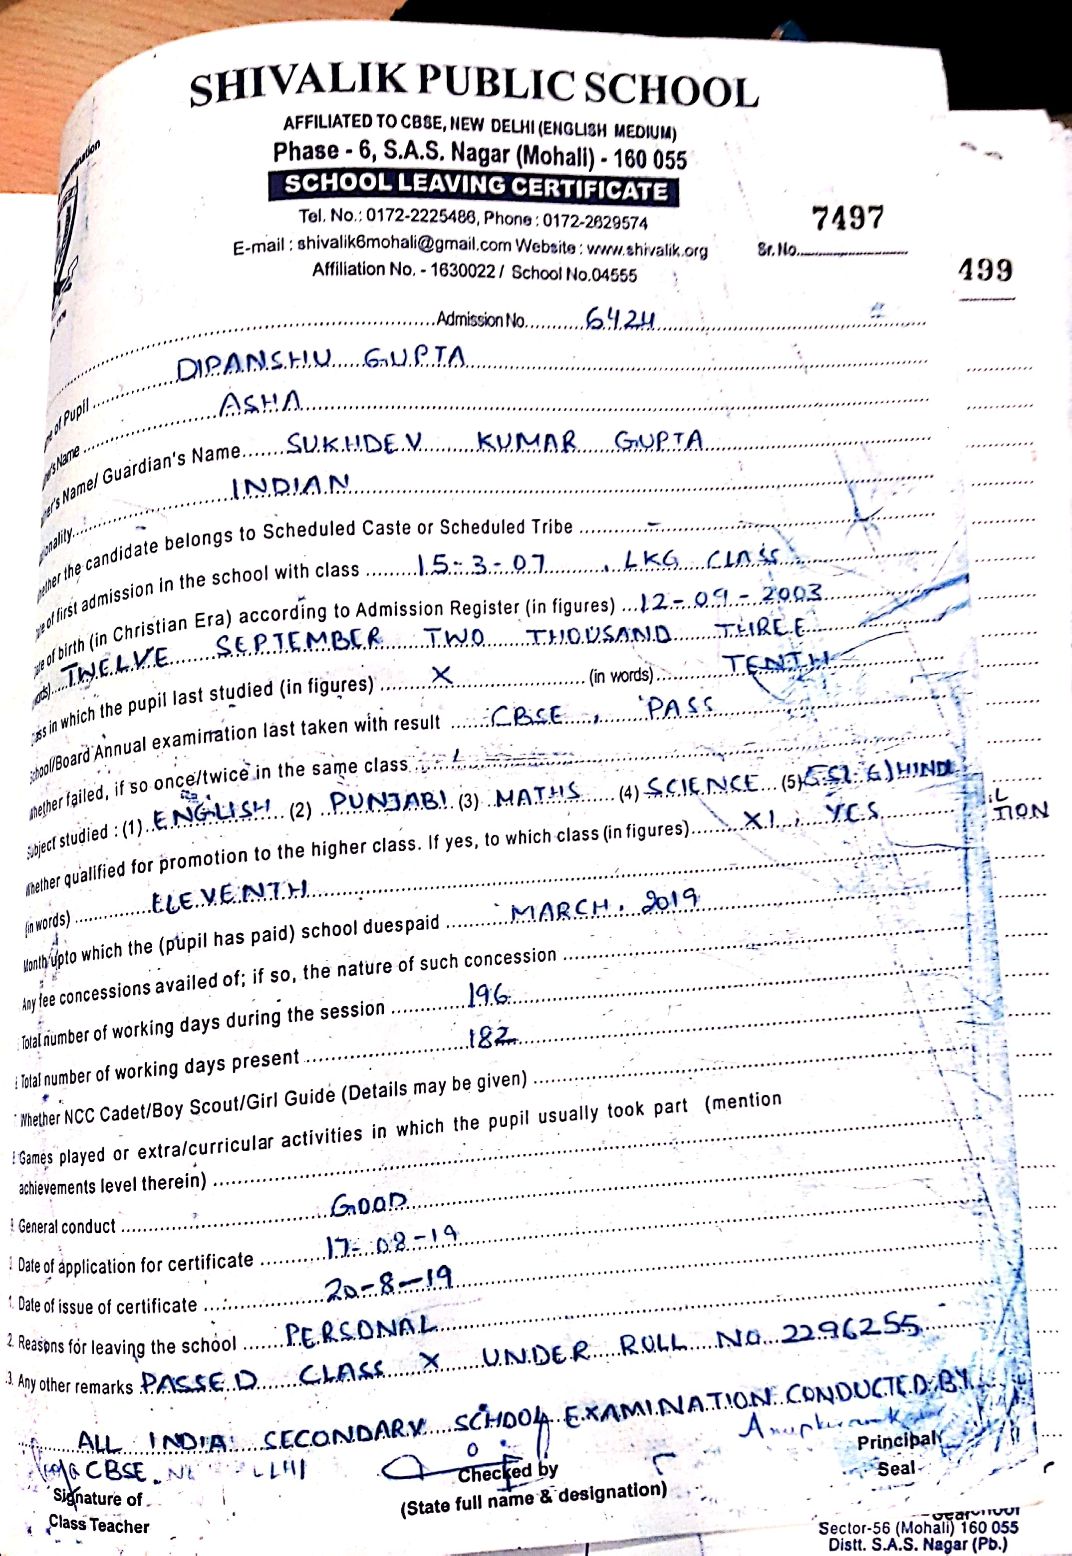 SHIVALIK PUBLIC SCHOOL
AFFILIATED TO CBSE, NEW DELHI (ENGLISH MEDIUM)
Phase - 6, S.A.S. Nagar (Mohali) - 160 055
SCHOOL LEAVING CERTIFICATE
Tel. No.: 0172-2225486, Phone : 0172-2629574
7497
E-mail : shivalik6mohali@gmail.com Website : www.shivalik.org
Sr. No.
Affiliation No. - 1630022 / School No.04555
499
Admission No. 6424
of Pupil DIPANSHU GUPTA
Name ASHA
Name/ Guardian's Name SUKHDEV KUMAR GUPTA
INDIAN
the candidate belongs to Scheduled Caste or Scheduled Tribe -
of first admission in the school with class 15-3-07, LKG CLASS
of birth (in Christian Era) according to Admission Register (in figures) 12-09-2003
TWELVE SEPTEMBER TWO THOUSAND THREE
in which the pupil last studied (in figures) X (in words) TENTH
School/Board Annual examination last taken with result CBSE, PASS
Whether failed, if so once/twice in the same class
Subject studied : (1) ENGLISH (2) PUNJABI (3) MATHS (4) SCIENCE (5) S.St. 6) HINDI
Whether qualified for promotion to the higher class. If yes, to which class (in figures) XI, YES
TION
(in words) ELEVENTH
Month upto which the (pupil has paid) school duespaid MARCH, 2019
Any fee concessions availed of; if so, the nature of such concession
Total number of working days during the session 196
Total number of working days present 182
Whether NCC Cadet/Boy Scout/Girl Guide (Details may be given)
Games played or extra/curricular activities in which the pupil usually took part (mention
achievements level therein)
General conduct GOOD
Date of application for certificate 17-08-19
Date of issue of certificate 20-8-19
2. Reasons for leaving the school PERSONAL
3. Any other remarks PASSED CLASS X UNDER ROLL NO 2296255
ALL INDIA SECONDARY SCHOOL EXAMINATION CONDUCTED BY
CBSE
Signature of
Class Teacher
Checked by
(State full name & designation)
Principal
Seal
Sector-56 (Mohali) 160 055
Distt. S.A.S. Nagar (Pb.)